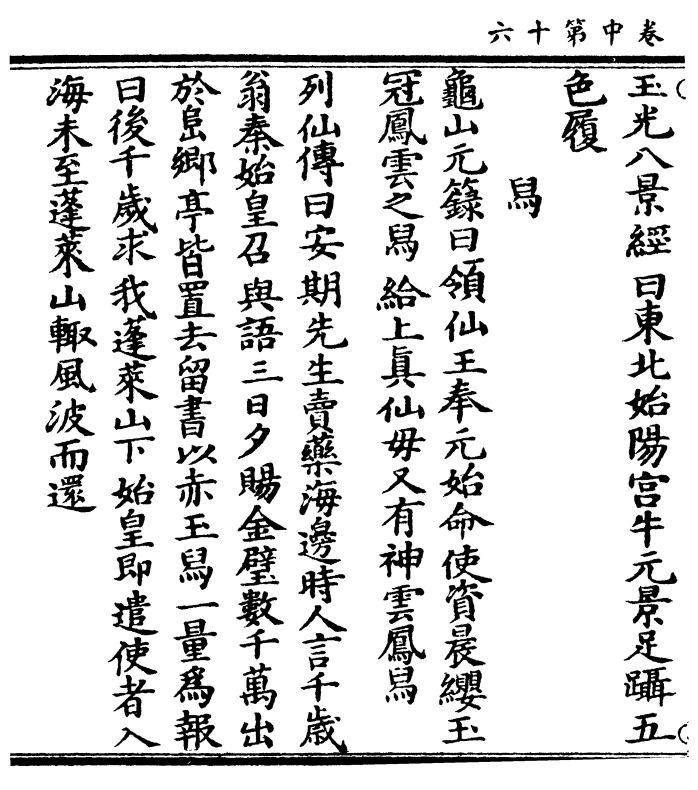 卷中第十六
玉光八景經曰東北始陽宫牛元景足躡五
色履
舄
龜山元籙曰領仙王奉元始命使資晨纓玉
冠鳳雲之舄給上眞仙毋又有神雲鳳舄
列仙傳曰安期先生賣藥海邊時人言千歲
翁秦始皇召與語三日夕賜金璧數千萬出
於阜鄉亭皆置去留書以赤玉舄一量爲報
曰後千歲求我蓬萊山下始皇即遣使者入
海未至蓬萊山輙風波而還